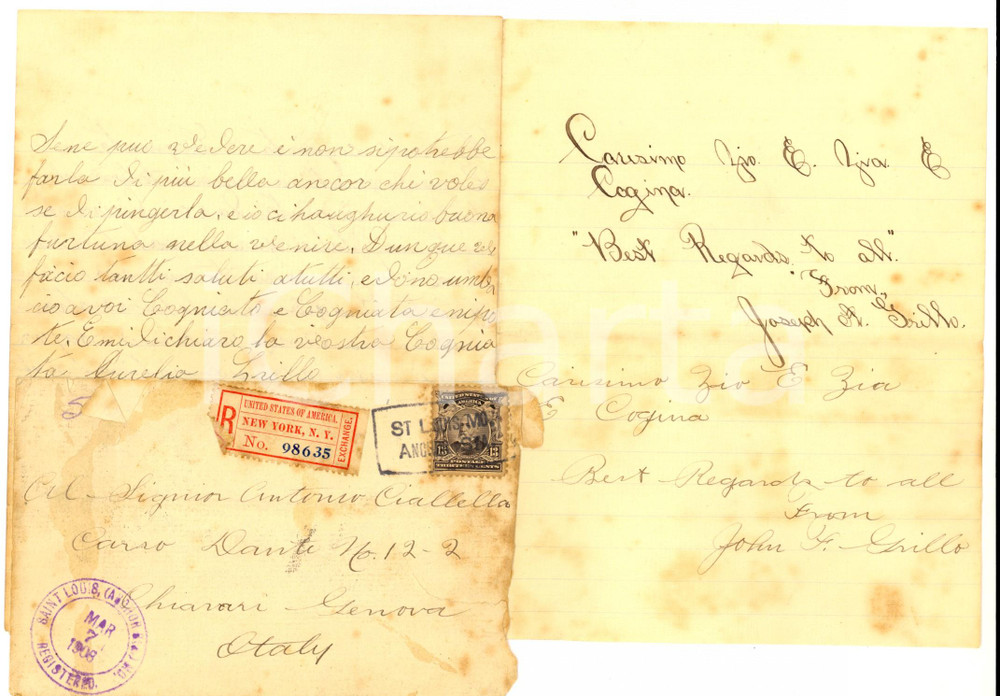 Sene può vedere è non si potrebbe
farla di più bella ancor chi voles
se di pingerla, e io ci haughurio buona
furtuna nella venire, Dunque vi
facio tantti saluti atutti, e dono um
cio a voi Cogniato e Cogniata e nipo
te, E mi dichiaro la vostra Cognia
ta Aurelia Grillo
R
UNITED STATES OF AMERICA.
NEW YORK, N. Y.
No. 98635
EXCHANGE.
ST LOUIS, MO.
UNITED STATES OF AMERICA
13 13
POSTAGE
THIRTEEN CENTS
Al Signor Antonio Ciallella
Carso Dante No. 12-2
Chiavari Genova
Italy
SAINT LOUIS,
MAR
7
1908
REGISTERED.
Carisimo Zio E. Zia E
Cogina.
"Best Regards to all"
From,,
Joseph A. Grillo.
Carisimo Zio E Zia
E Cogina
Best Regards to all
From
John F. Grillo
iCharta